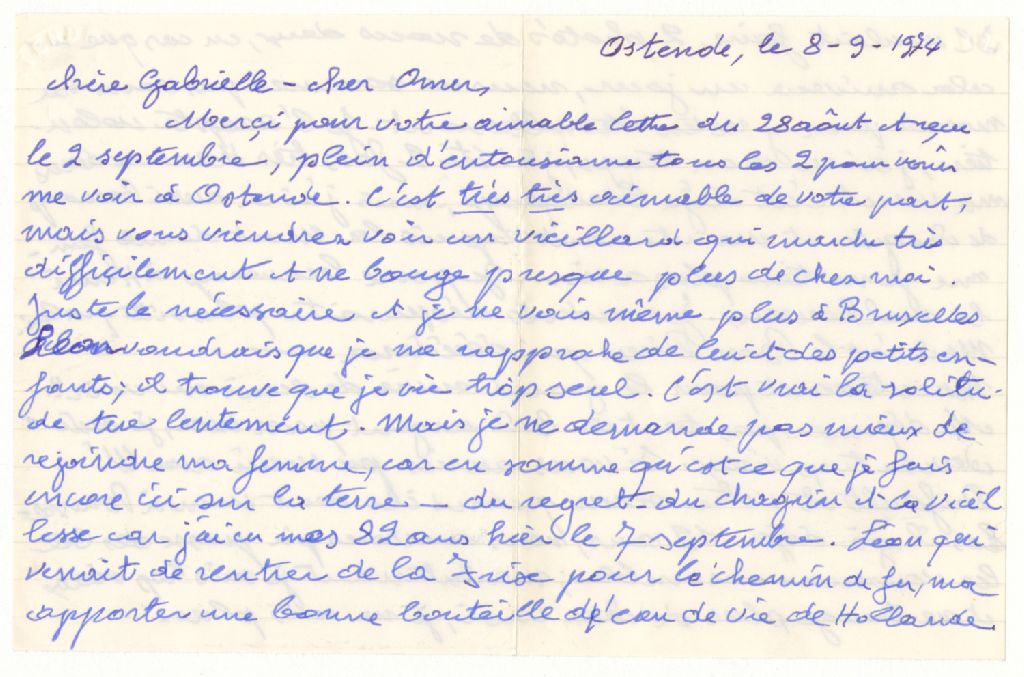 Ostende, le 8-9-1974
Chère Gabrielle - cher Omer,
Merçi pour votre aimable lettre du 28 aôut et reçu
le 2 septembre, plein d'entousiasme tous les 2 pour venir
me voir à Ostende. C'est très très aimable de votre part,
mais vous viendrez voir un vieillard qui marche très
diffiçilement et ne bouge presque plus de chez moi.
Juste le nécessaire et je ne vais même plus à Bruxelles
Léon voudrais que je me rapproche de lui et des petits en-
fants; il trouve que je vie trop seul. C'est vrai la solitu-
de tue lentement. Mais je ne demande pas mieux de
rejoindre ma femme, car en somme qu'est ce que je fais
encore ici sur la terre - du regret - du chagrin et la vieil
lesse car j'ai eu mes 82 ans hier le 7 septembre. Léon qui
venait de rentrer de la Frise pour le chemin de fer, ma
apporter une bonne bouteille d'eau de vie de Hollande.